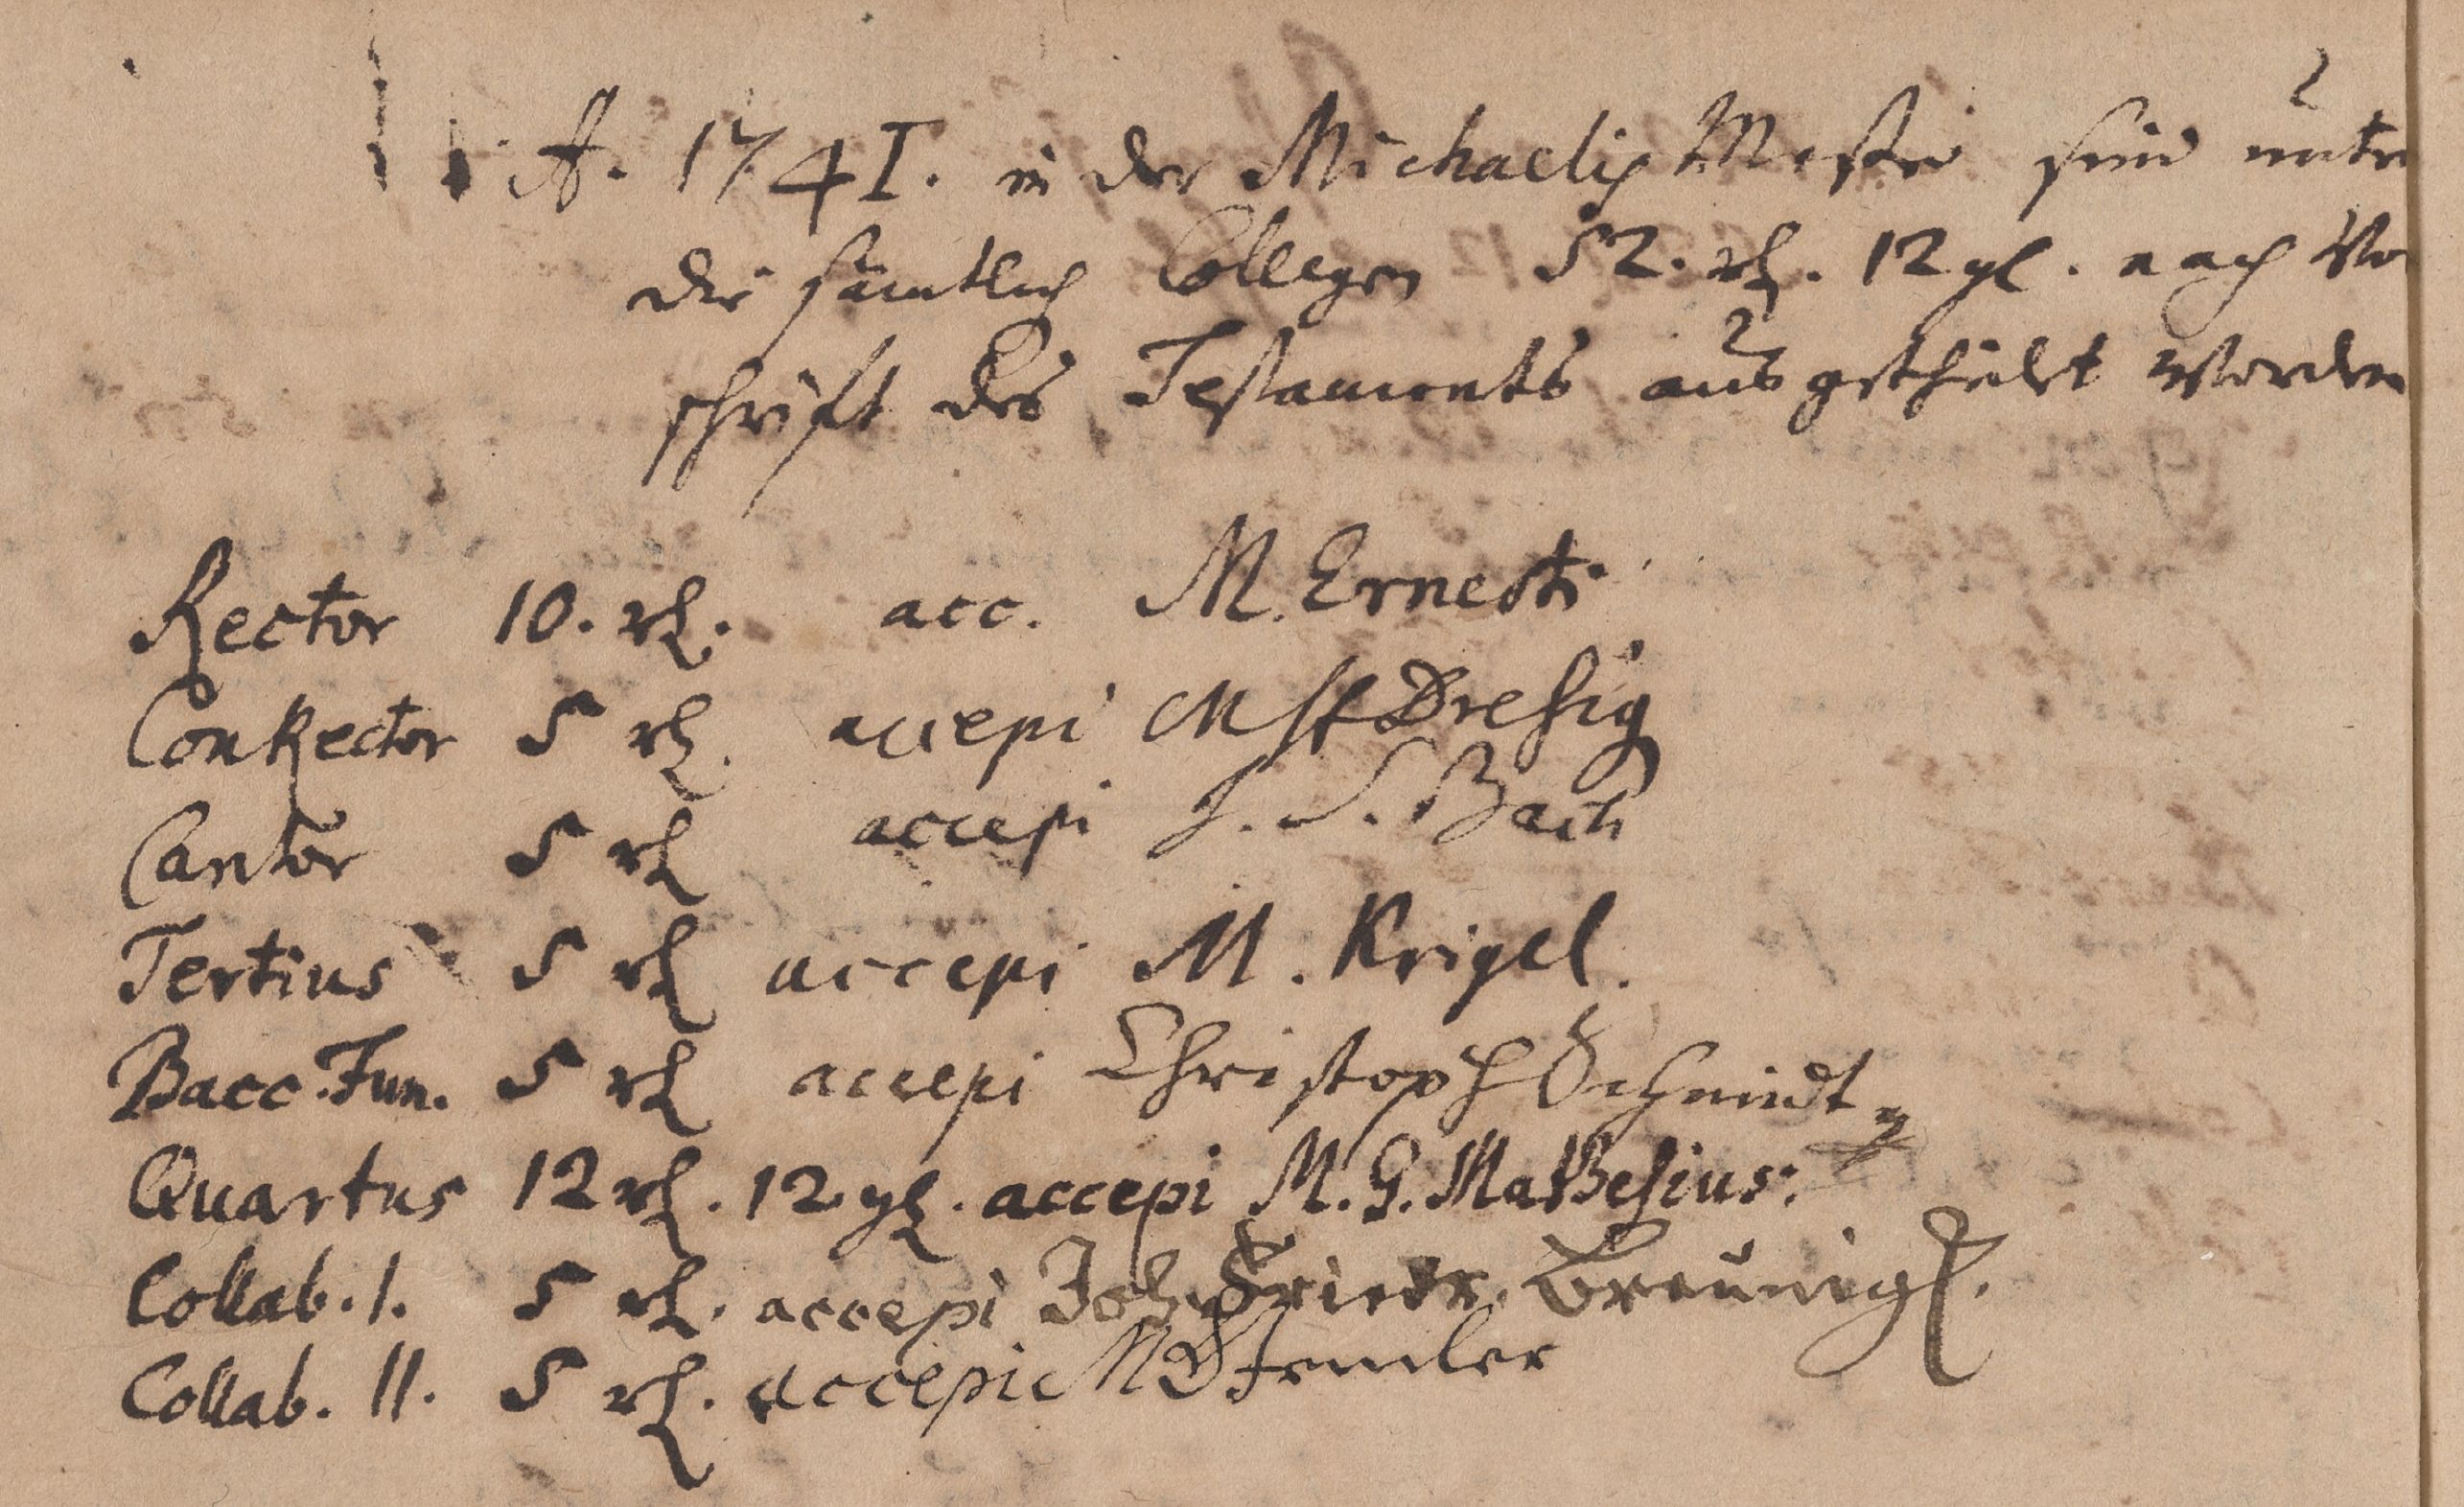 A. 1741. in der Michaelis Messe sind unter
die sämtlich Collegen 52. rl. 12 gl. nach Vo
schrift des Testaments ausgetheilt worden
Rector 10. rl. acc. M. Ernesti
ConRector 5 rl. accepi M Dresig
Cantor 5 rl accepi J. S. Bach
Tertius 5 rl accepi M. Krigel.
Bacc. Fun. 5 rl accepi Christoph Schmidt
Quartus 12 rl. 12 gl. accepi M. G. Mathesius.
Collab. I. 5 rl. accepi Joh. Friedr. Breunigk.
Collab. II. 5 rl. accepi M